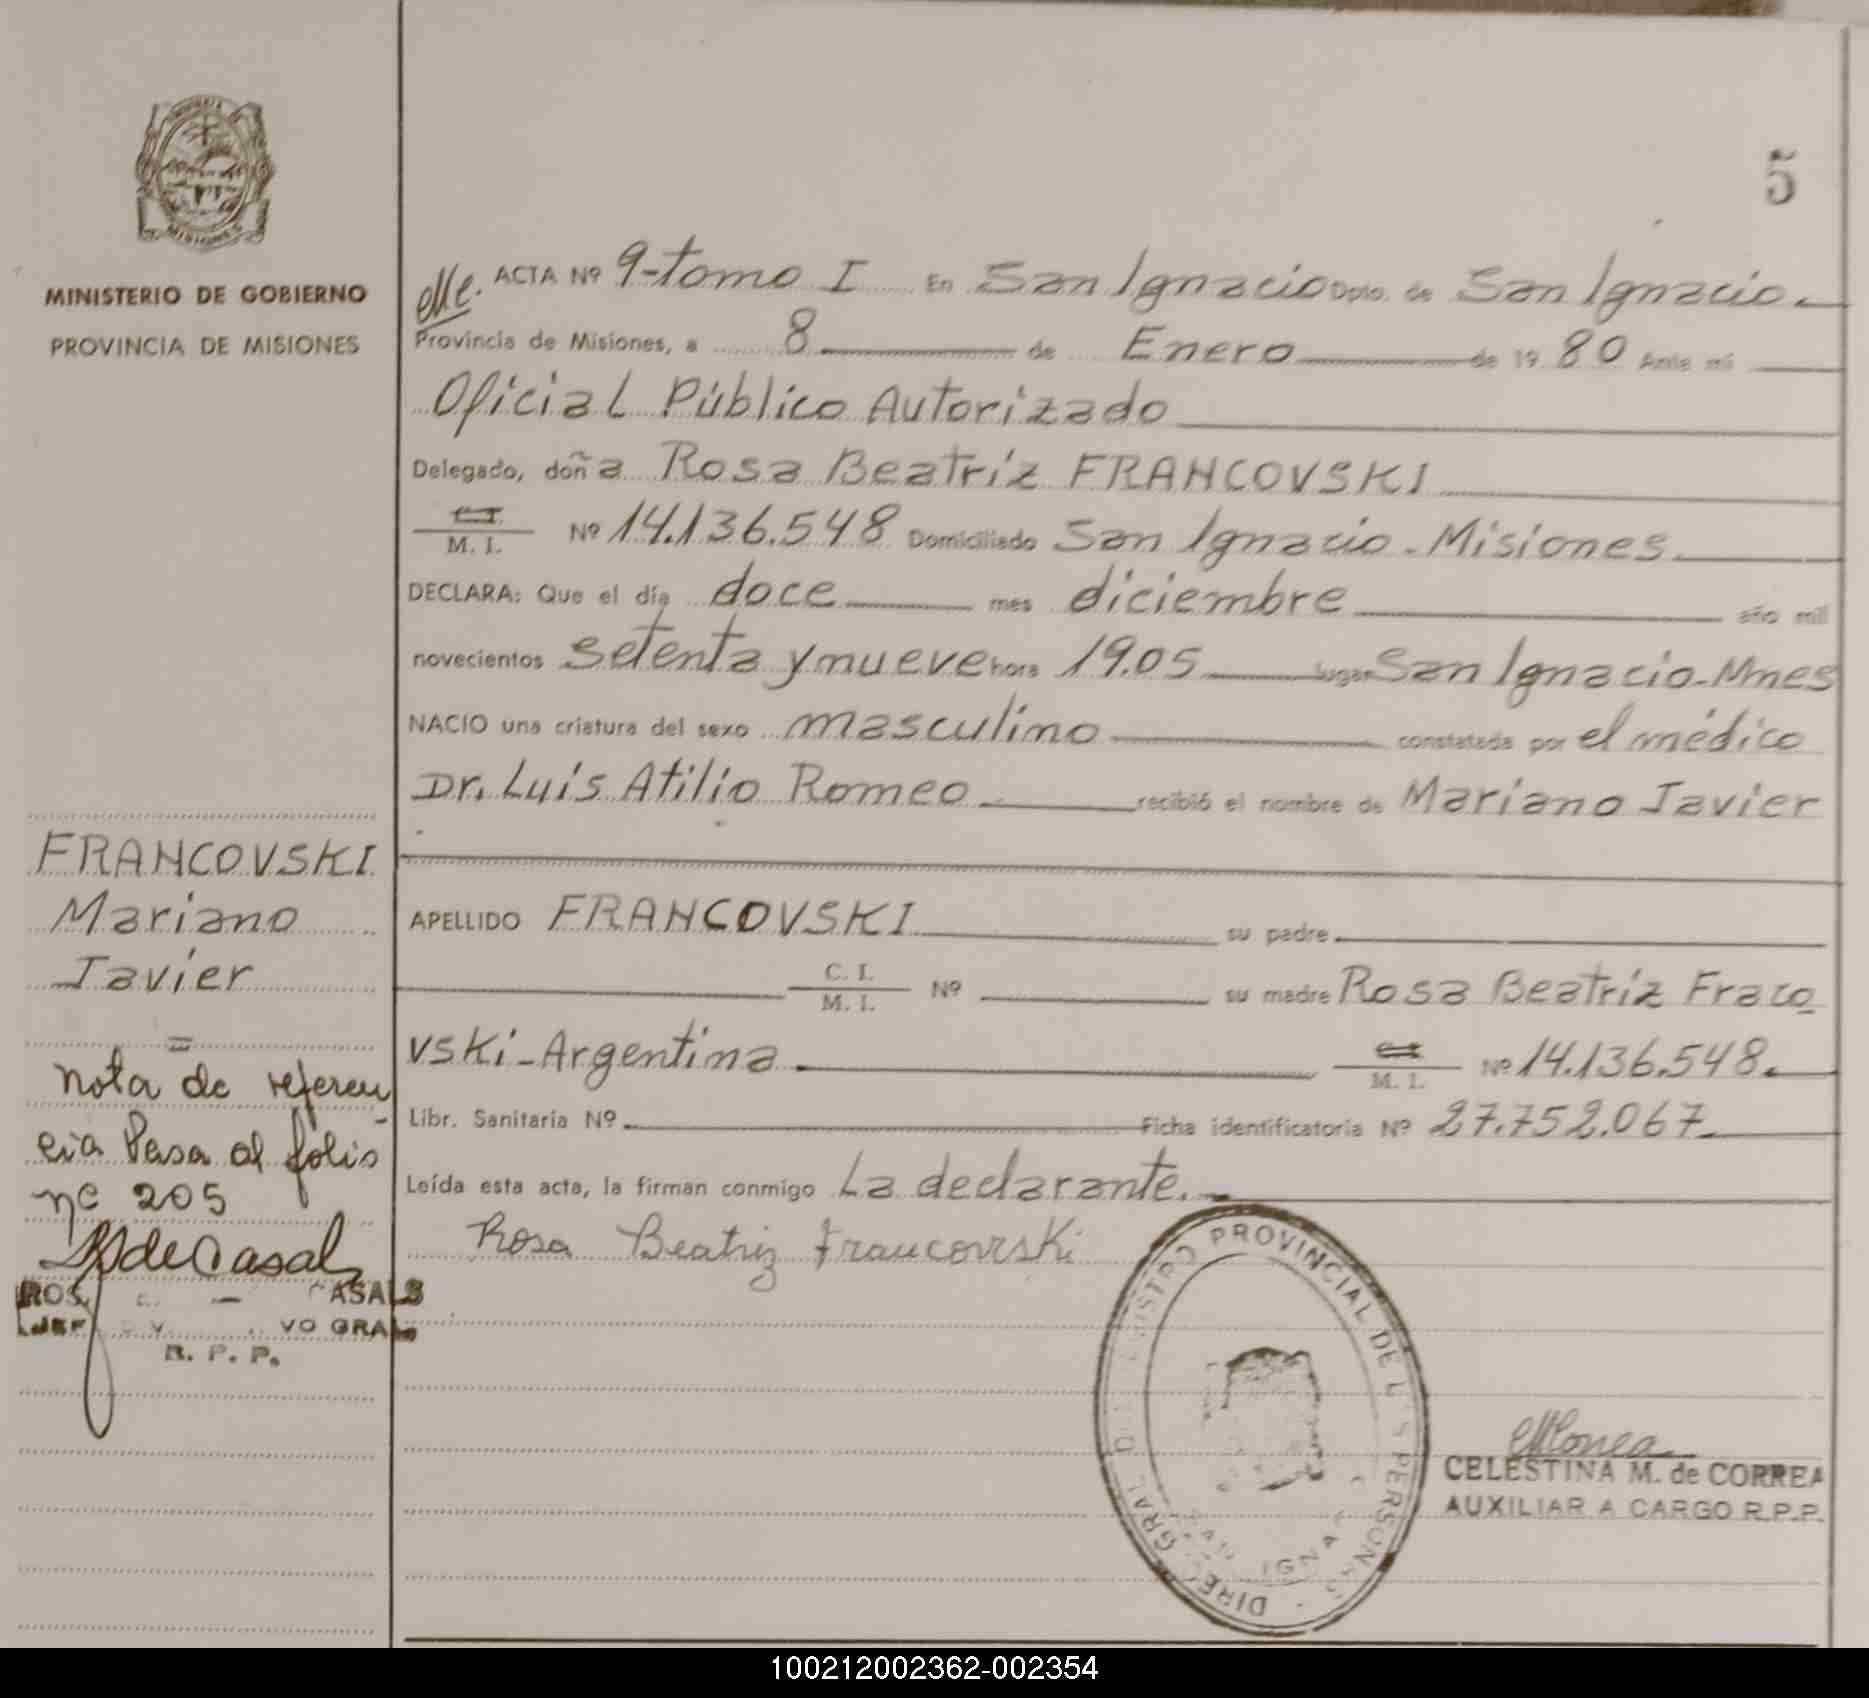 5
MISIONES
MINISTERIO DE GOBIERNO
PROVINCIA DE MISIONES
ACTA Nº 9-tomo I En San Ignacio Dpto. de San Ignacio.
Provincia de Misiones, a 8 de Enero de 1980 Ante mi
Oficial Público Autorizado
Delegado, doña Rosa Beatríz FRANCOVSKI
M. I. Nº 14.136.548 Domiciliado San Ignacio - Misiones.
DECLARA: Que el día doce mes diciembre año mil
novecientos setenta y nueve hora 19.05 lugar San Ignacio-Mnes
NACIO una criatura del sexo masculino constatada por el médico
Dr. Luis Atilio Romeo recibió el nombre de Mariano Javier
APELLIDO FRANCOVSKI su padre
C. I.
M. I. Nº su madre Rosa Beatríz Fraco
vski-Argentina M. I. Nº 14.136.548.
Libr. Sanitaria Nº Ficha identificatoria Nº 27.752.067.
Leída esta acta, la firman conmigo La declarante.
Rosa Beatriz Francovski
FRANCOVSKI
Mariano
Javier
=
nota de referen
cia Pasa al folio
nº 205
de Casal
ROS CASALS
JEF VO GRAL
R. P. P.
DIREC GRAL DEL REGISTRO PROVINCIAL DE LAS PERSONAS
SAN IGNAC
CELESTINA M. de CORREA
AUXILIAR A CARGO R.P.P.
100212002362-002354